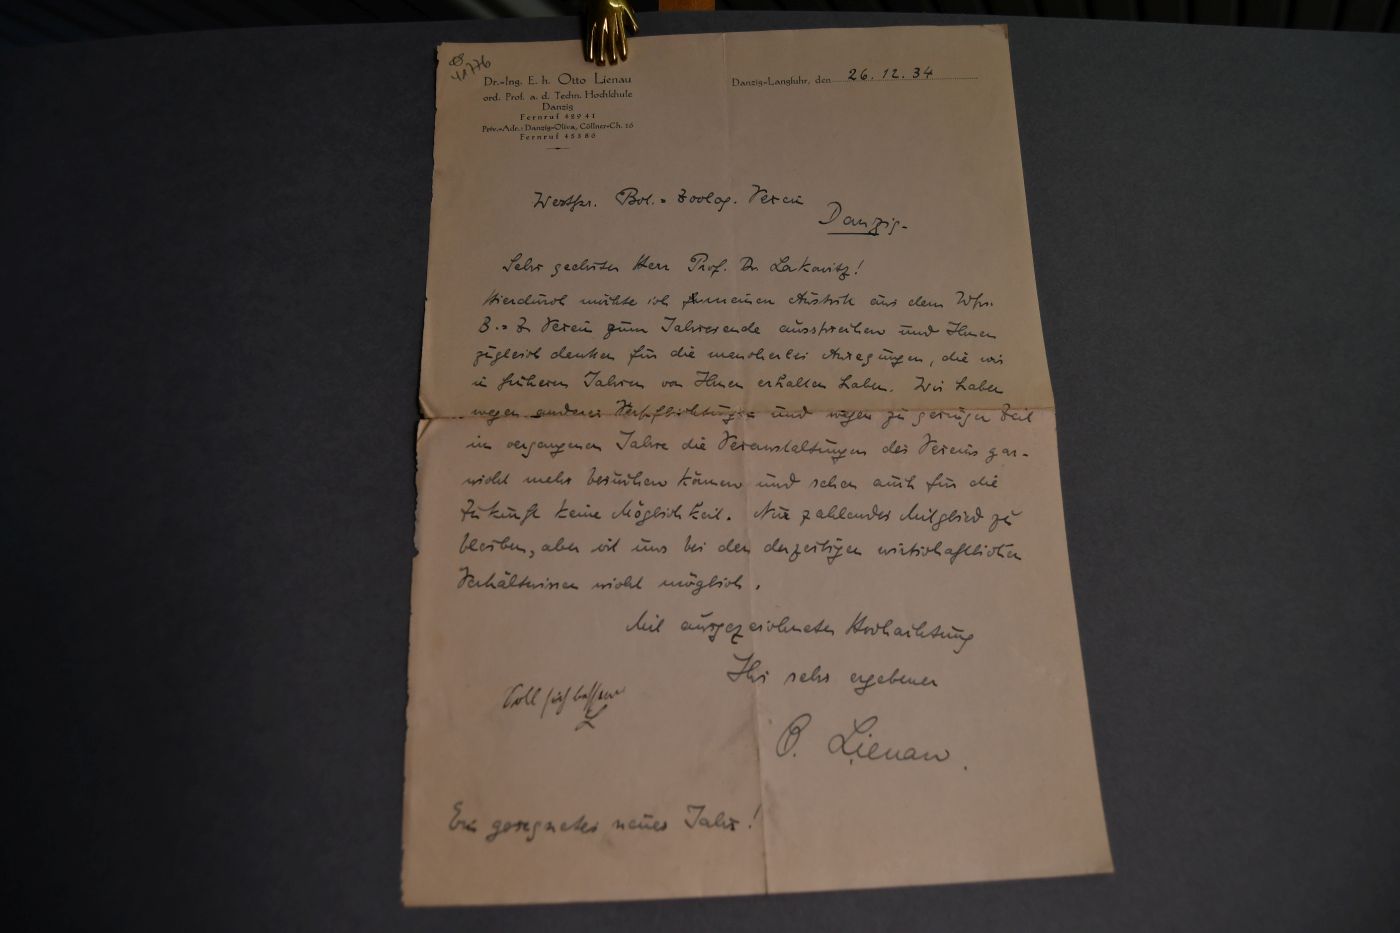 Dr.-Ing. E. h. Otto Lienau
ord. Prof. a. d. Techn. Hochschule
Danzig
Fernruf 42941
Priv.-Adr.: Danzig-Oliva, Cöllner-Ch. 16
Fernruf 45386
Danzig-Langfuhr, den 26.12.34
Westpr. Bot.-Zoolog. Verein
Danzig.
Sehr geehrter Herr Prof. Dr. Lakowitz!
Hierdurch möchte ich meinen Austritt aus dem Wpr.
B.-Z. Verein zum Jahresende aussprechen und Ihnen
zugleich danken für die mancherlei Anregungen, die wir
in früheren Jahren von Ihnen erhalten haben. Wir haben
wegen anderer Verpflichtungen und wegen zu geringer Zeit
im vergangenen Jahre die Veranstaltungen des Vereins gar-
nicht mehr besuchen können und sehen auch für die
Zukunft keine Möglichkeit. Nur zahlendes Mitglied zu
bleiben, aber ist uns bei den derzeitigen wirtschaftlichen
Verhältnissen nicht möglich.
Mit ausgezeichneter Hochachtung
Ihr sehr ergebener
O. Lienau.
L
Ein gesegnetes neues Jahr!